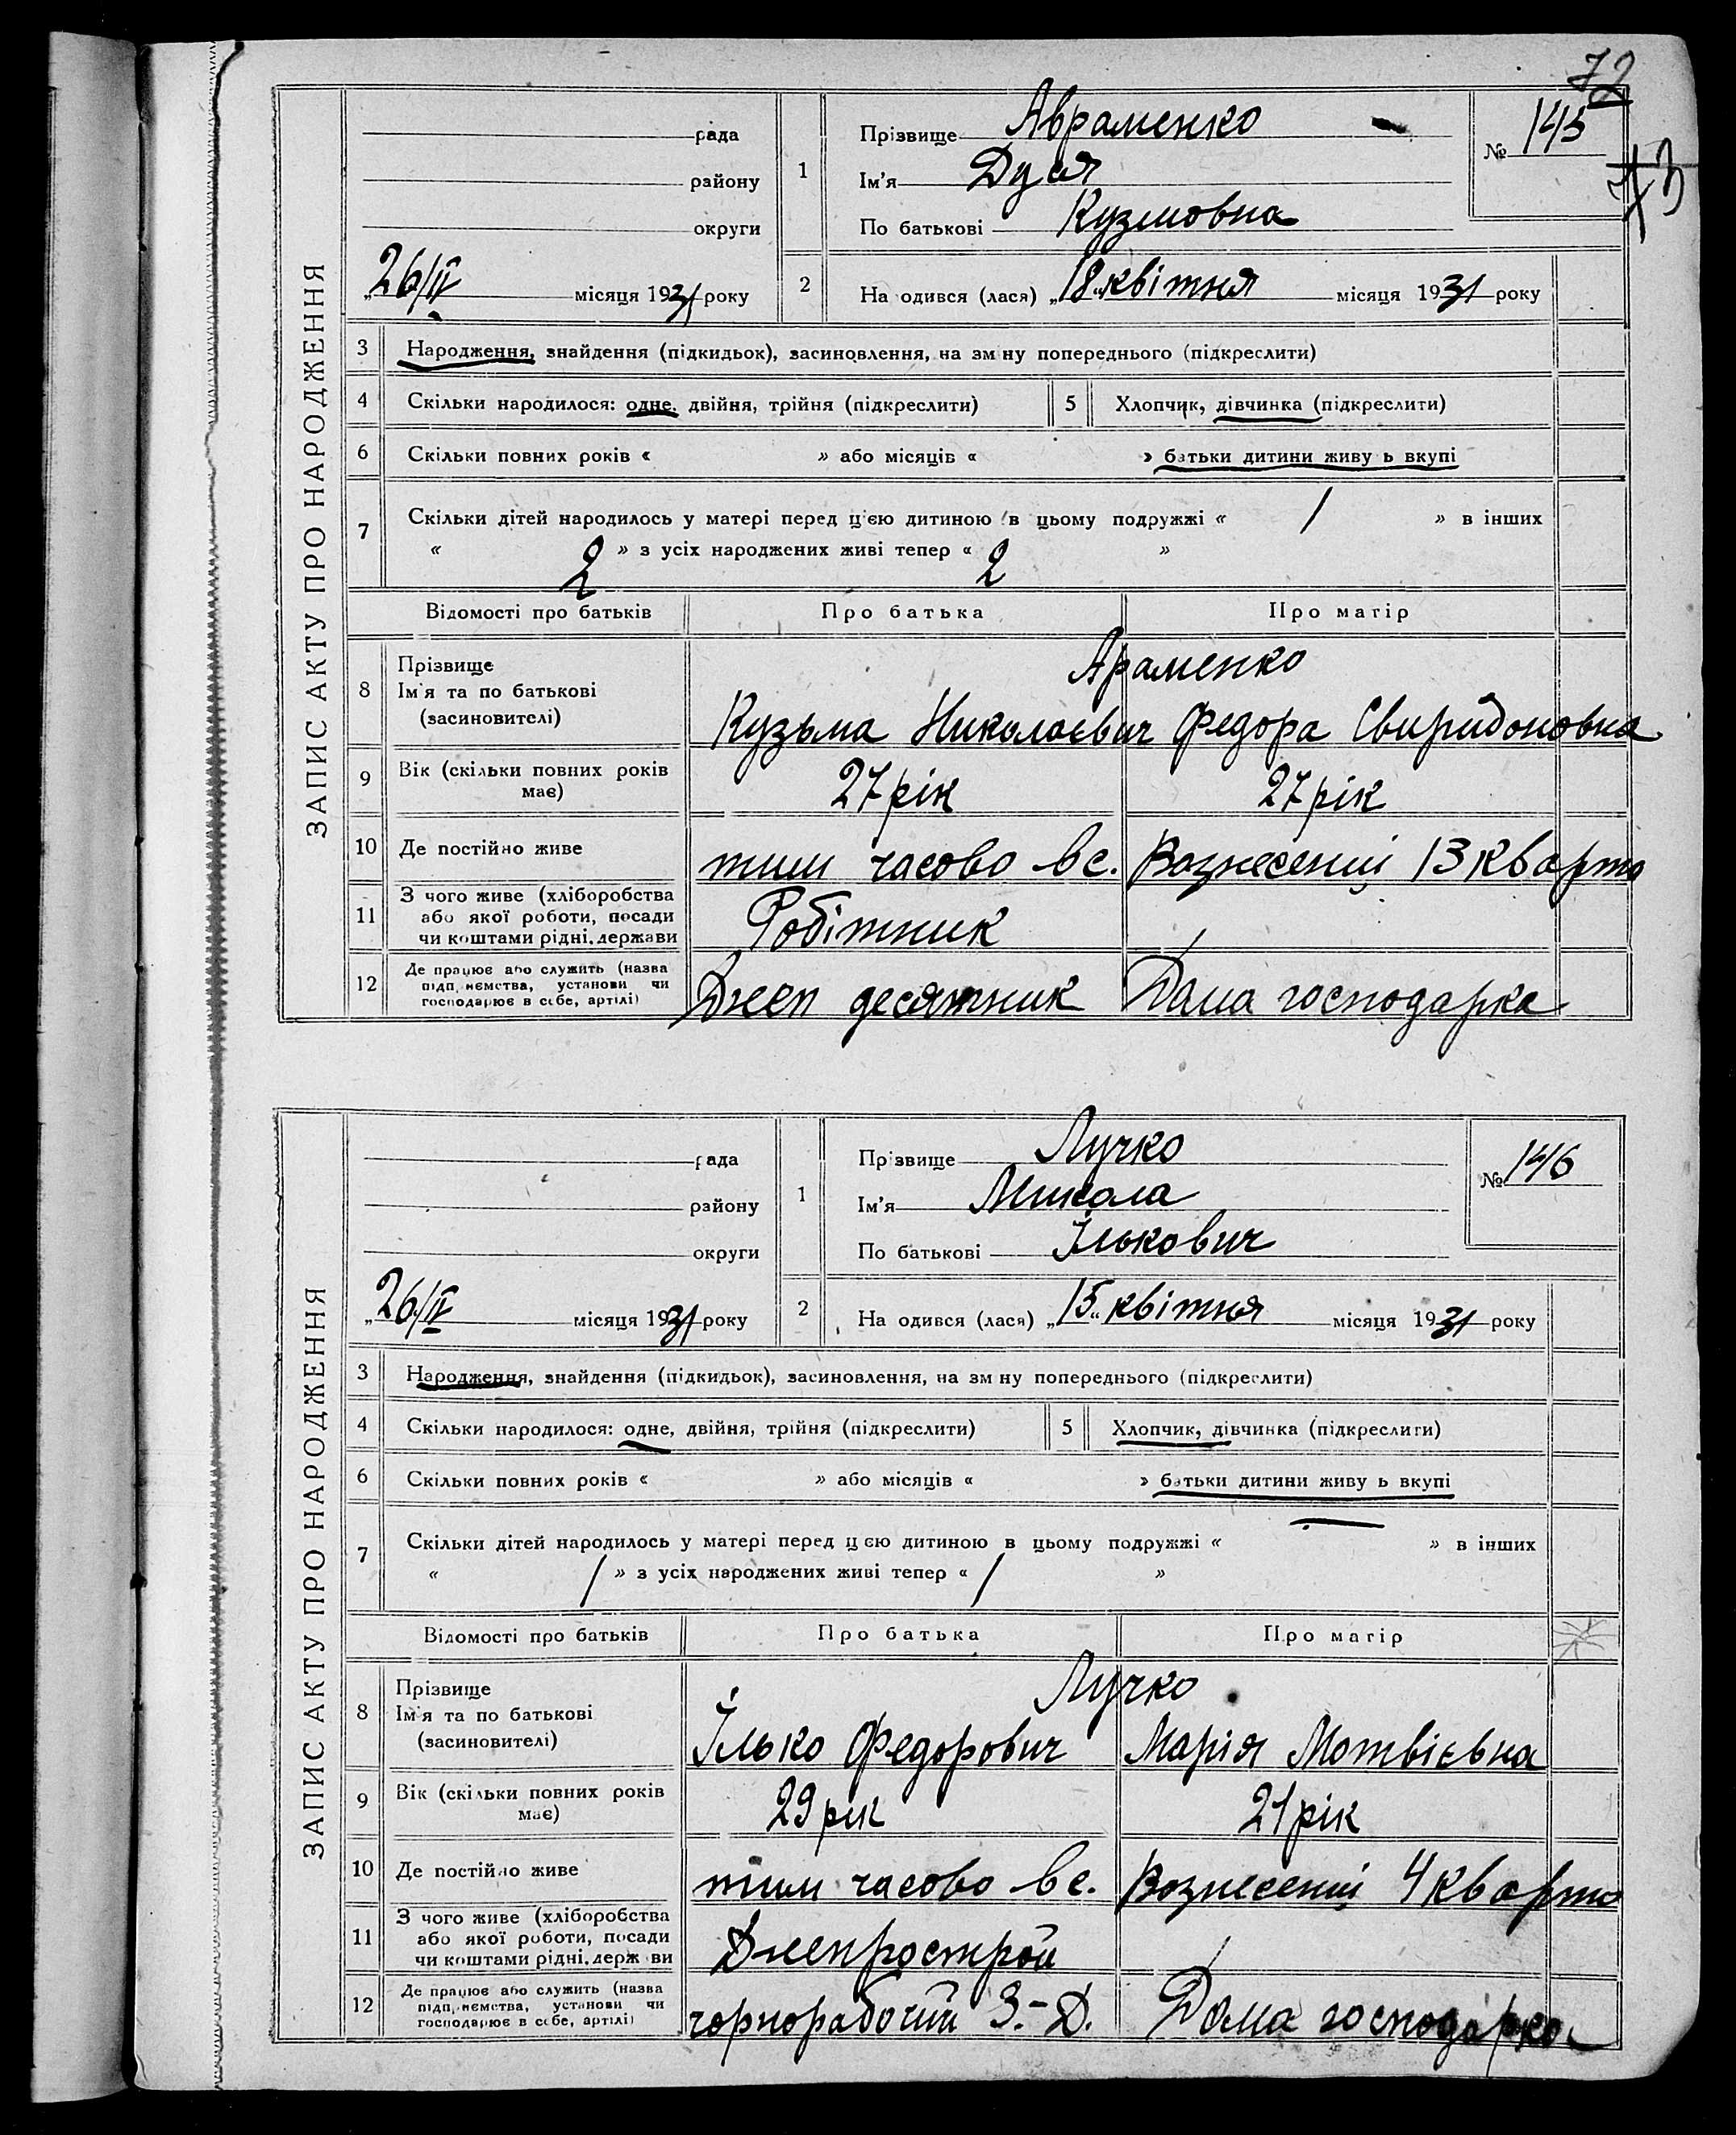 72
73
ЗАПИС АКТУ ПРО НАРОДЖЕННЯ
рада
району
округи
„26/IV місяця 1931 року
1
Прізвище Авраменко
Ім'я Дуся
По батькові Кузмовна
№ 145
2
На одився (лася) „18„ квітня місяця 1931 року
3 Народження, знайдення (підкидьок), засиновлення, на зм ну попереднього (підкреслити)
4 Скільки народилося: одне, двійня, трійня (підкреслити) 5 Хлопчик, дівчинка (підкреслити)
6 Скільки повних років « » або місяців « » батьки дитини живу ь вкупі
7 Скільки дітей народилось у матері перед цією дитиною в цьому подружжі « 1 » в інших
« 2 » з усіх народжених живі тепер « 2 »
Відомості про батьків Про батька Про матір
8 Прізвище
Ім'я та по батькові
(засиновителі)
Араменко
Кузьма Николаєвич Федора Свиридоновна
9 Вік (скільки повних років має) 27 рік 27 рік
10 Де постійно живе тим часово в с. Вознесенці 13 кварто
11 З чого живе (хліборобства
або якої роботи, посади
чи коштами рідні, держави
Робітник
12 Де працює або служить (назва
підп, иємства, установи чи
господарює в себе, артілі)
Днеп десятник Дома господарка
ЗАПИС АКТУ ПРО НАРОДЖЕННЯ
рада
району
округи
„26/IV місяця 1931 року
1
Пр звище Лучко
Ім'я Микола
По батькові Ількович
№ 146
2
На одився (лася) „15„ квітня місяця 1931 року
3 Народження, знайдення (підкидьок), засиновлення, на зм ну попереднього (підкреслити)
4 Скільки народилося: одне, двійня, трійня (підкреслити) 5 Хлопчик, дівчинка (підкреслити)
6 Скільки повних років « » або місяців « » батьки дитини живу ь вкупі
7 Скільки дітей народилось у матері перед цією дитиною в цьому подружжі « — » в інших
« 1 » з усіх народжених живі тепер « 1 »
Відомості про батьків Про батька Про матір
8 Прізвище
Ім'я та по батькові
(засиновителі)
Лучко
Ілько Федорович Марія Мотвієвна
9 Вік (скільки повних років має) 29 рік 21 рік
10 Де постійно живе тим часово в с. Вознесенці 4 кварто
11 З чого живе (хліборобства
або якої роботи, посади
чи коштами рідні, держ ви
Днепрострой
12 Де працює або служить (назва
підп, иємства, установи чи
господарює в себе, артілі)
чорнорабочий З.-Д. Дома господарка